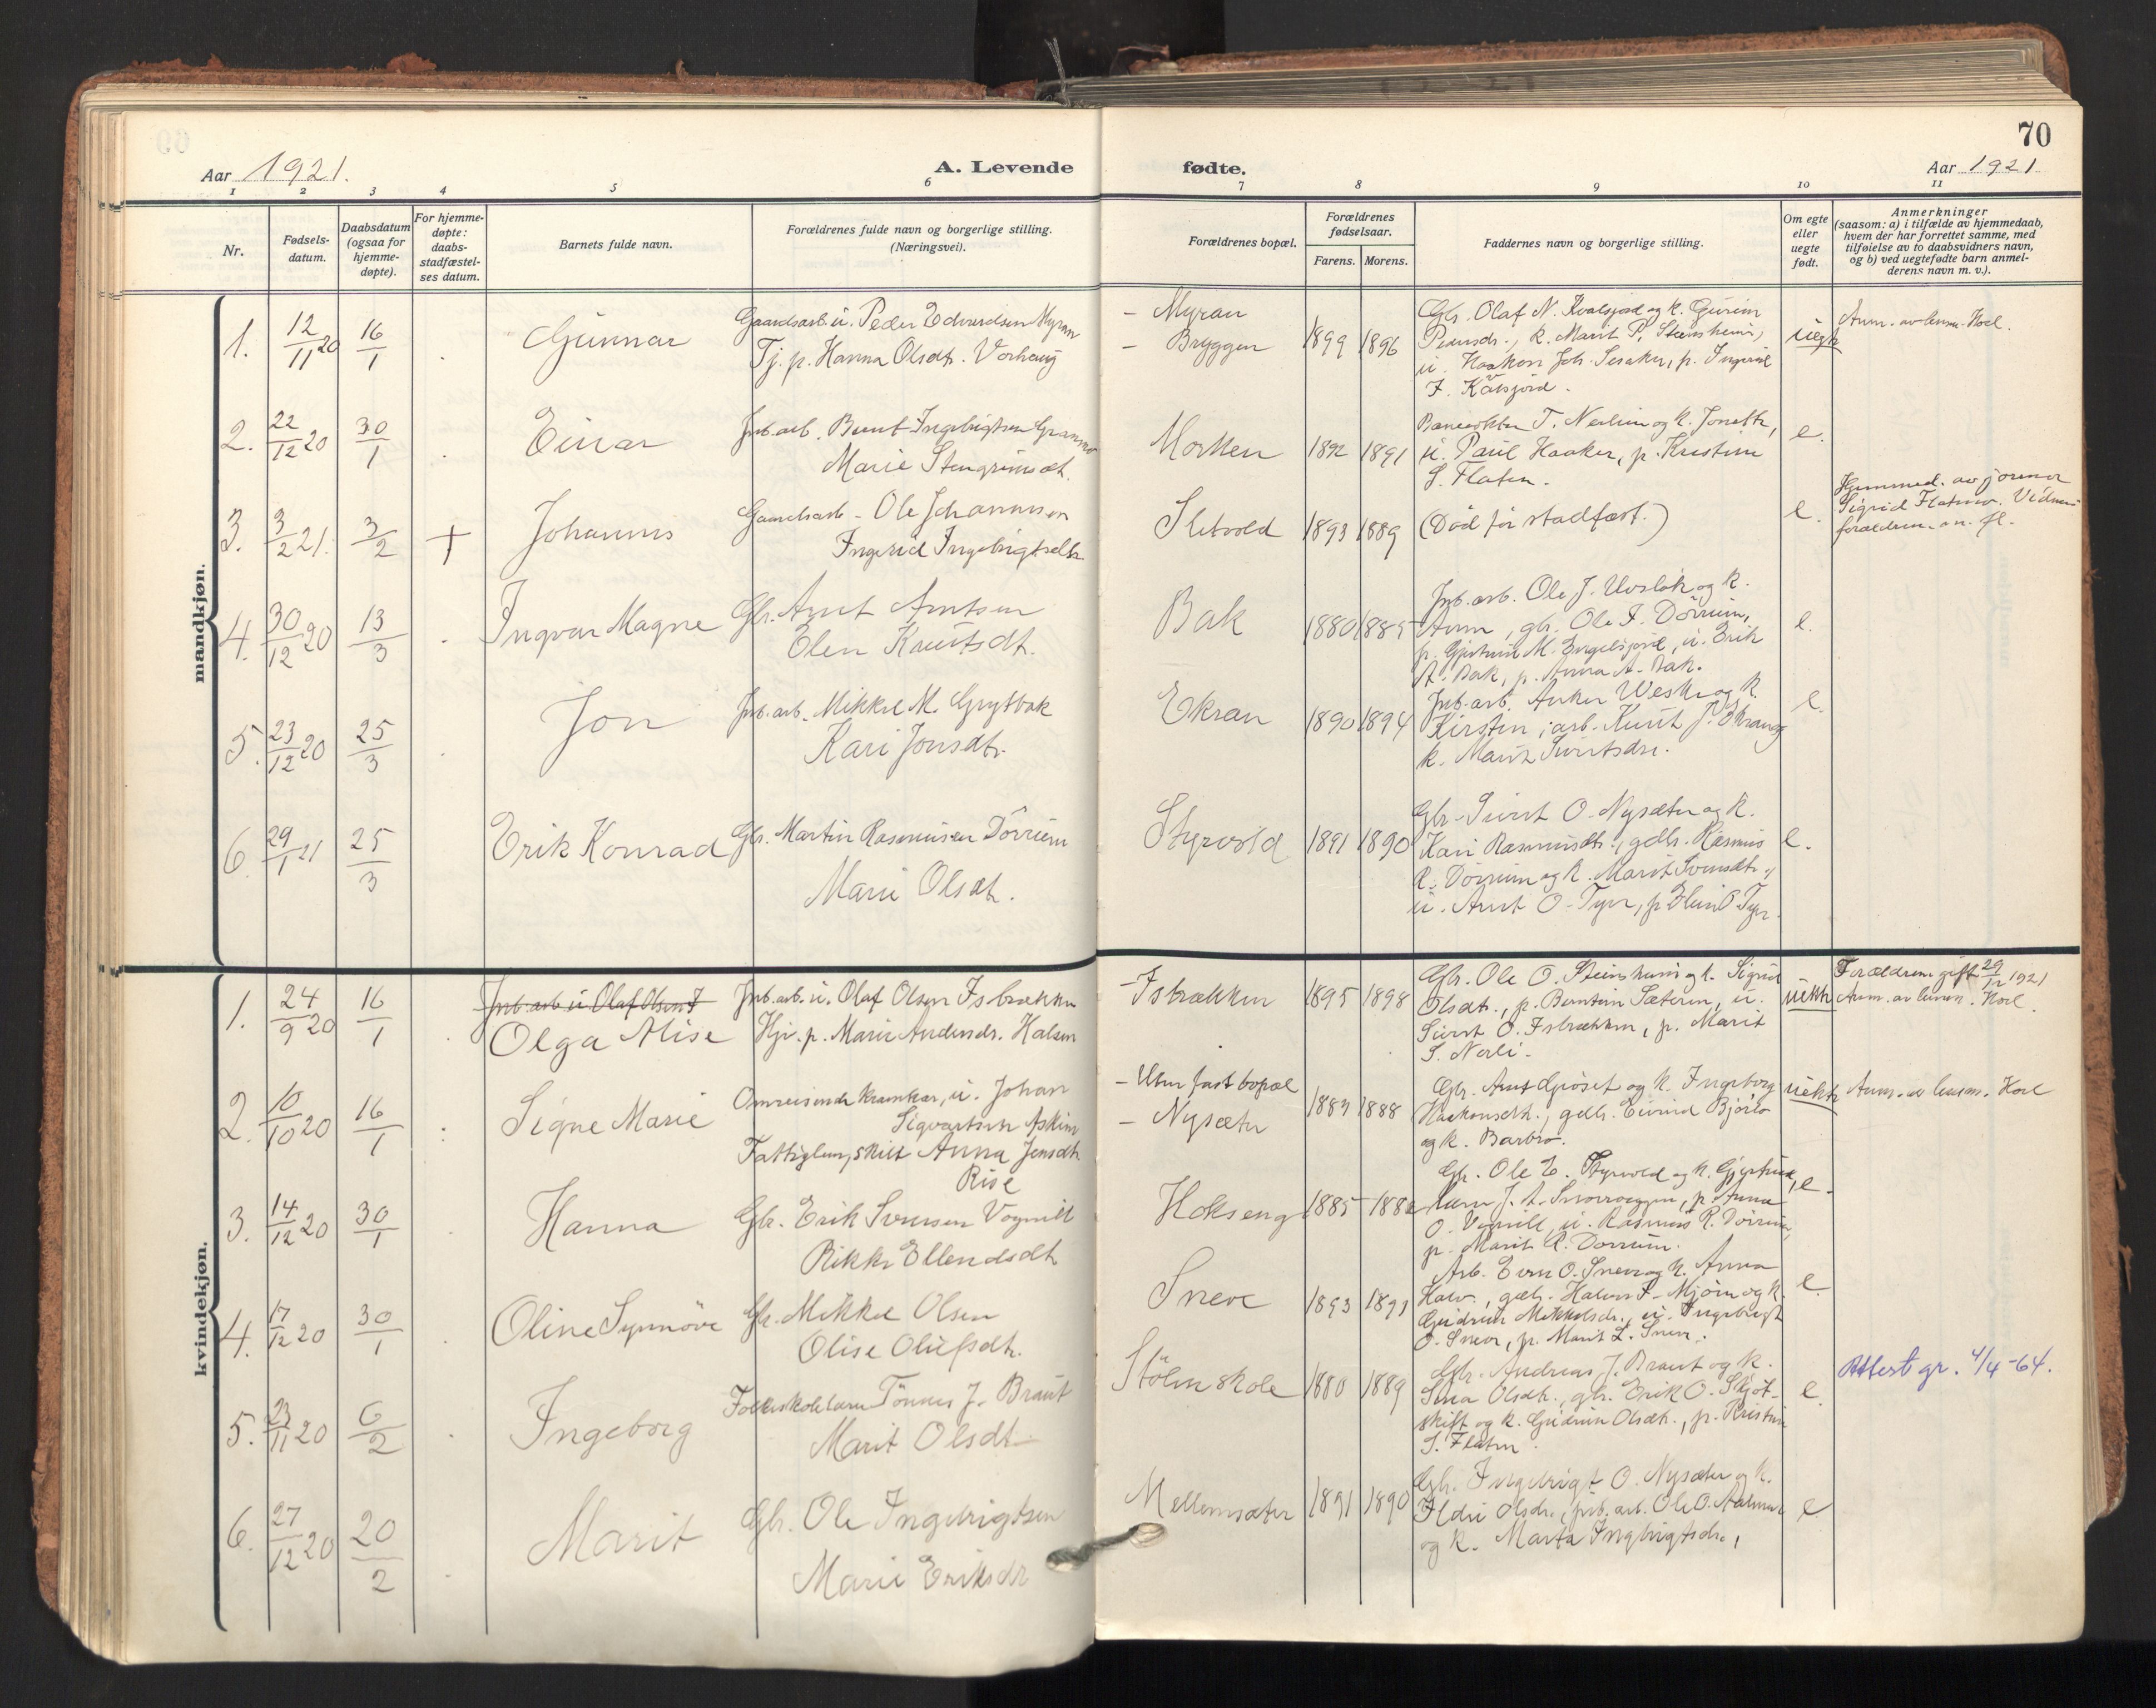 70
Aar 1921.
A. Levende
fødte.
Aar 1921
1 2 3 4 5 6
7 8 9 10 11
Nr.
Fødsels-
datum.
Daabsdatum
(ogsaa for
hjemme-
døpte).
For hjemme-
døpte:
daabs-
stadfæstel-
ses datum.
Barnets fulde navn.
Forældrenes fulde navn og borgerlige stilling.
(Næringsvei).
Forældrenes bopæl.
Forældrenes
fødselsaar.
Farens. Morens.
Faddernes navn og borgerlige stilling.
Om egte
eller
uegte
født.
Anmerkninger
(saasom: a) i tilfælde av hjemmedaab,
hvem der har forrettet samme, med
tilføielse av to daabsvidners navn,
og b) ved uegtefødte barn anmel-
derens navn m. v.).
mandkjøn.
1. 12/11 20 16/1 Gunnar
Gaardsarb. u. Peder Edvardsen Myran
Tj. p. Hanna Olsdt. Vorhaug
- Myran
- Bryggen 1899 1896
Gbr. Olaf N. Kvalsjord og k. Gurim
Pedersdr., k. Marit P. Steinsheim,
u. Haakon Joh. Sesaker, p. Ingerid
uegte
Anm. av lensm. Hoel.
2. 22/12 20 30/1 Einar
Jnb.arb. Bernt Ingebrigtsen Granmo
Marie Stengrimsdt.
Morken 1892 1891
T. Nerlien og k. Jonette,
u. Paul Haaker, p. Kristine
S. Flaten.
e.
3. 3/2 21. 3/2 + Johannes
Gaardsarb. Ole Johannesen
Ingerid Ingebrigtsdtr.
Sletvold 1893 1889
(Död før stadfæst.)
e.
Hjemmed. av jormor
Sigrid Flatmo. Vidner
forældrene
4. 30/12 20 13/3 Ingvar Magne
Gbr. Arnt Arntsen
Elen Knutsdt.
Bak 1880 1885
Jnb.arb. Ole J. Uvsløk og k.
Anna, gbr. Ole I. Dörrum,
p. Gjertrud M. Engelsjord, u. Erik
A. Bak, p. Anna A. Bak.
e.
5. 23/12 20 25/3 Jon
Jnb.arb. Mikkel M. Grytbak
Kari Jonsdtr.
Ekran 1890 1894
Jnb.arb. Anker Weske og k.
Kirsten, arb. Knut J. Ekran og
k. Marit Sivertsdr.
e.
6. 29/1 21 25/3 Erik Konrad
Gbr. Martin Rasmussen Dörrum
Marie Olsdt.
Styrvold 1891 1890
Gbr. Sivert O. Nysæter og k.
Kari Rasmusdt., gdbr. Rasmus
R. Dörrum og k. Marit Svensdtr.,
u. Arnt O. Tyr
e.
kvindekjøn.
1. 24/9 20 16/1
Jnb.arb. u. Olaf Olsen I
Olga Alise
Jnb.arb. u. Olaf Olsen Isbrækken
Hjv. p. Marie Andersdr. Halsen
Isbrækken 1895 1898
Gbr. Ole O. Steinsheim og k. Sigrid
Olsdt., p. Berntine Sæteren, u.
Sivert O. Isbrækken, p. Marit
S. Nerli.
uekte
Forældrene gift 29/12 1921
Anm. av lensm. Hoel.
2. 10/10 20 16/1 Signe Marie
Omreisende kramkar, u. Johan
Sigvartsen Askim
Fattiglem, skilt Anna Jensdt.
Rise
- Uten fast bopæl
- Nysæter 1883 1888
Gbr. Arnt Gjöset og k. Ingeborg
Haakonsdtr., gdbr. Eivind Bjørlo
og k. Barbro.
uekte
Anm. av lensm. Hoel
3. 14/12 20 30/1 Hanna
Gbr. Erik Svensen Vognill
Rikke Ellendsdt.
Hokseng 1885
Gbr. Ole E. Styrvold og k. Gjertrud,
O. Vognill, u. Rasmus R. Dörrum,
p. Marit R. Dorrum.
e.
4. 17/12 20 30/1 Oline Synnöve
Gbr. Mikkel Olsen
Olise Olufsdtr.
Sneve 1893 1891
Arb. Even O. Sneve og k. Anna
Halv., gdb. Halvor F. Mjöen og k.
Gudrun Mikkelsdr., u. Ingebrigt
O. Sneve, p. Marit L. Sneve.
e
5. 23/11 20 6/2 Ingeborg
Folkeskolelærer Tönnes J. Braut
Marit Olsdt.
Stölen skole 1880 1889
Gbr. Andreas J. Braut og k.
Sina Olsdt., gbr. Erik O. Skjöt-
skift og k. Gudrun Olsdt., p. Kristine
S. Flaten
e.
Attest gr. 4/4-64.
6. 27/12 20 20/2 Marit
Gbr. Ole Ingebrigtsen
Marie Eriksdr
Mellemsæter 1891 1890
Gbr. Ingebrigt O. Nysæter og k.
Ildri Olsdr., jnb.arb. Ole O. Aalmo
og k. Marta Ingebrigtsdr.,
e